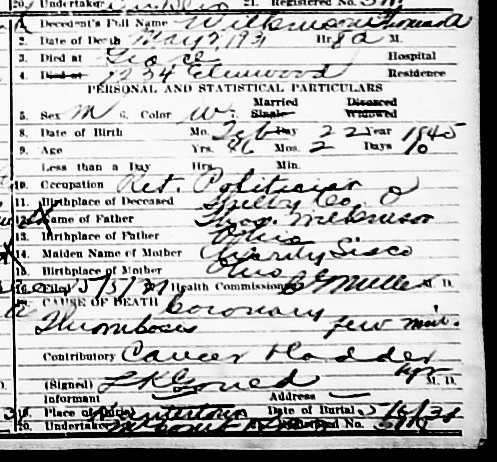 20. Undertaker 21. Registered No.
1. Decedent's Full Name Wilkinson Thomas A
2. Date of Death May 2, 1931 Hr. 8 a M.
3. Died at Hospital
4. Died at 1234 Elmwood Residence
PERSONAL AND STATISTICAL PARTICULARS
5. Sex M 6. Color W 7. Married Single Divorced Widowed
8. Date of Birth Mo. Feb Day 22 Year 1845
9. Age Yrs. 86 Mos. 2 Days 10
Less than a Day Hrs. Min.
10. Occupation Ret. Politician
11. Birthplace of Deceased Shelby Co. O
12. Name of Father Thos. Wilkinson
13. Birthplace of Father Ohio
14. Maiden Name of Mother Charity Sisco
15. Birthplace of Mother Ohio
16. Filed 5/5/31 Health Commissioner M. D.
17. CAUSE OF DEATH Coronary
Thrombosis few min.
Contributory Cancer Bladder
1 yr
(Signed) L K Gould M. D.
Informant Address
18. Place of Burial Date of Burial 5/6/31
20. Undertaker Registered No.